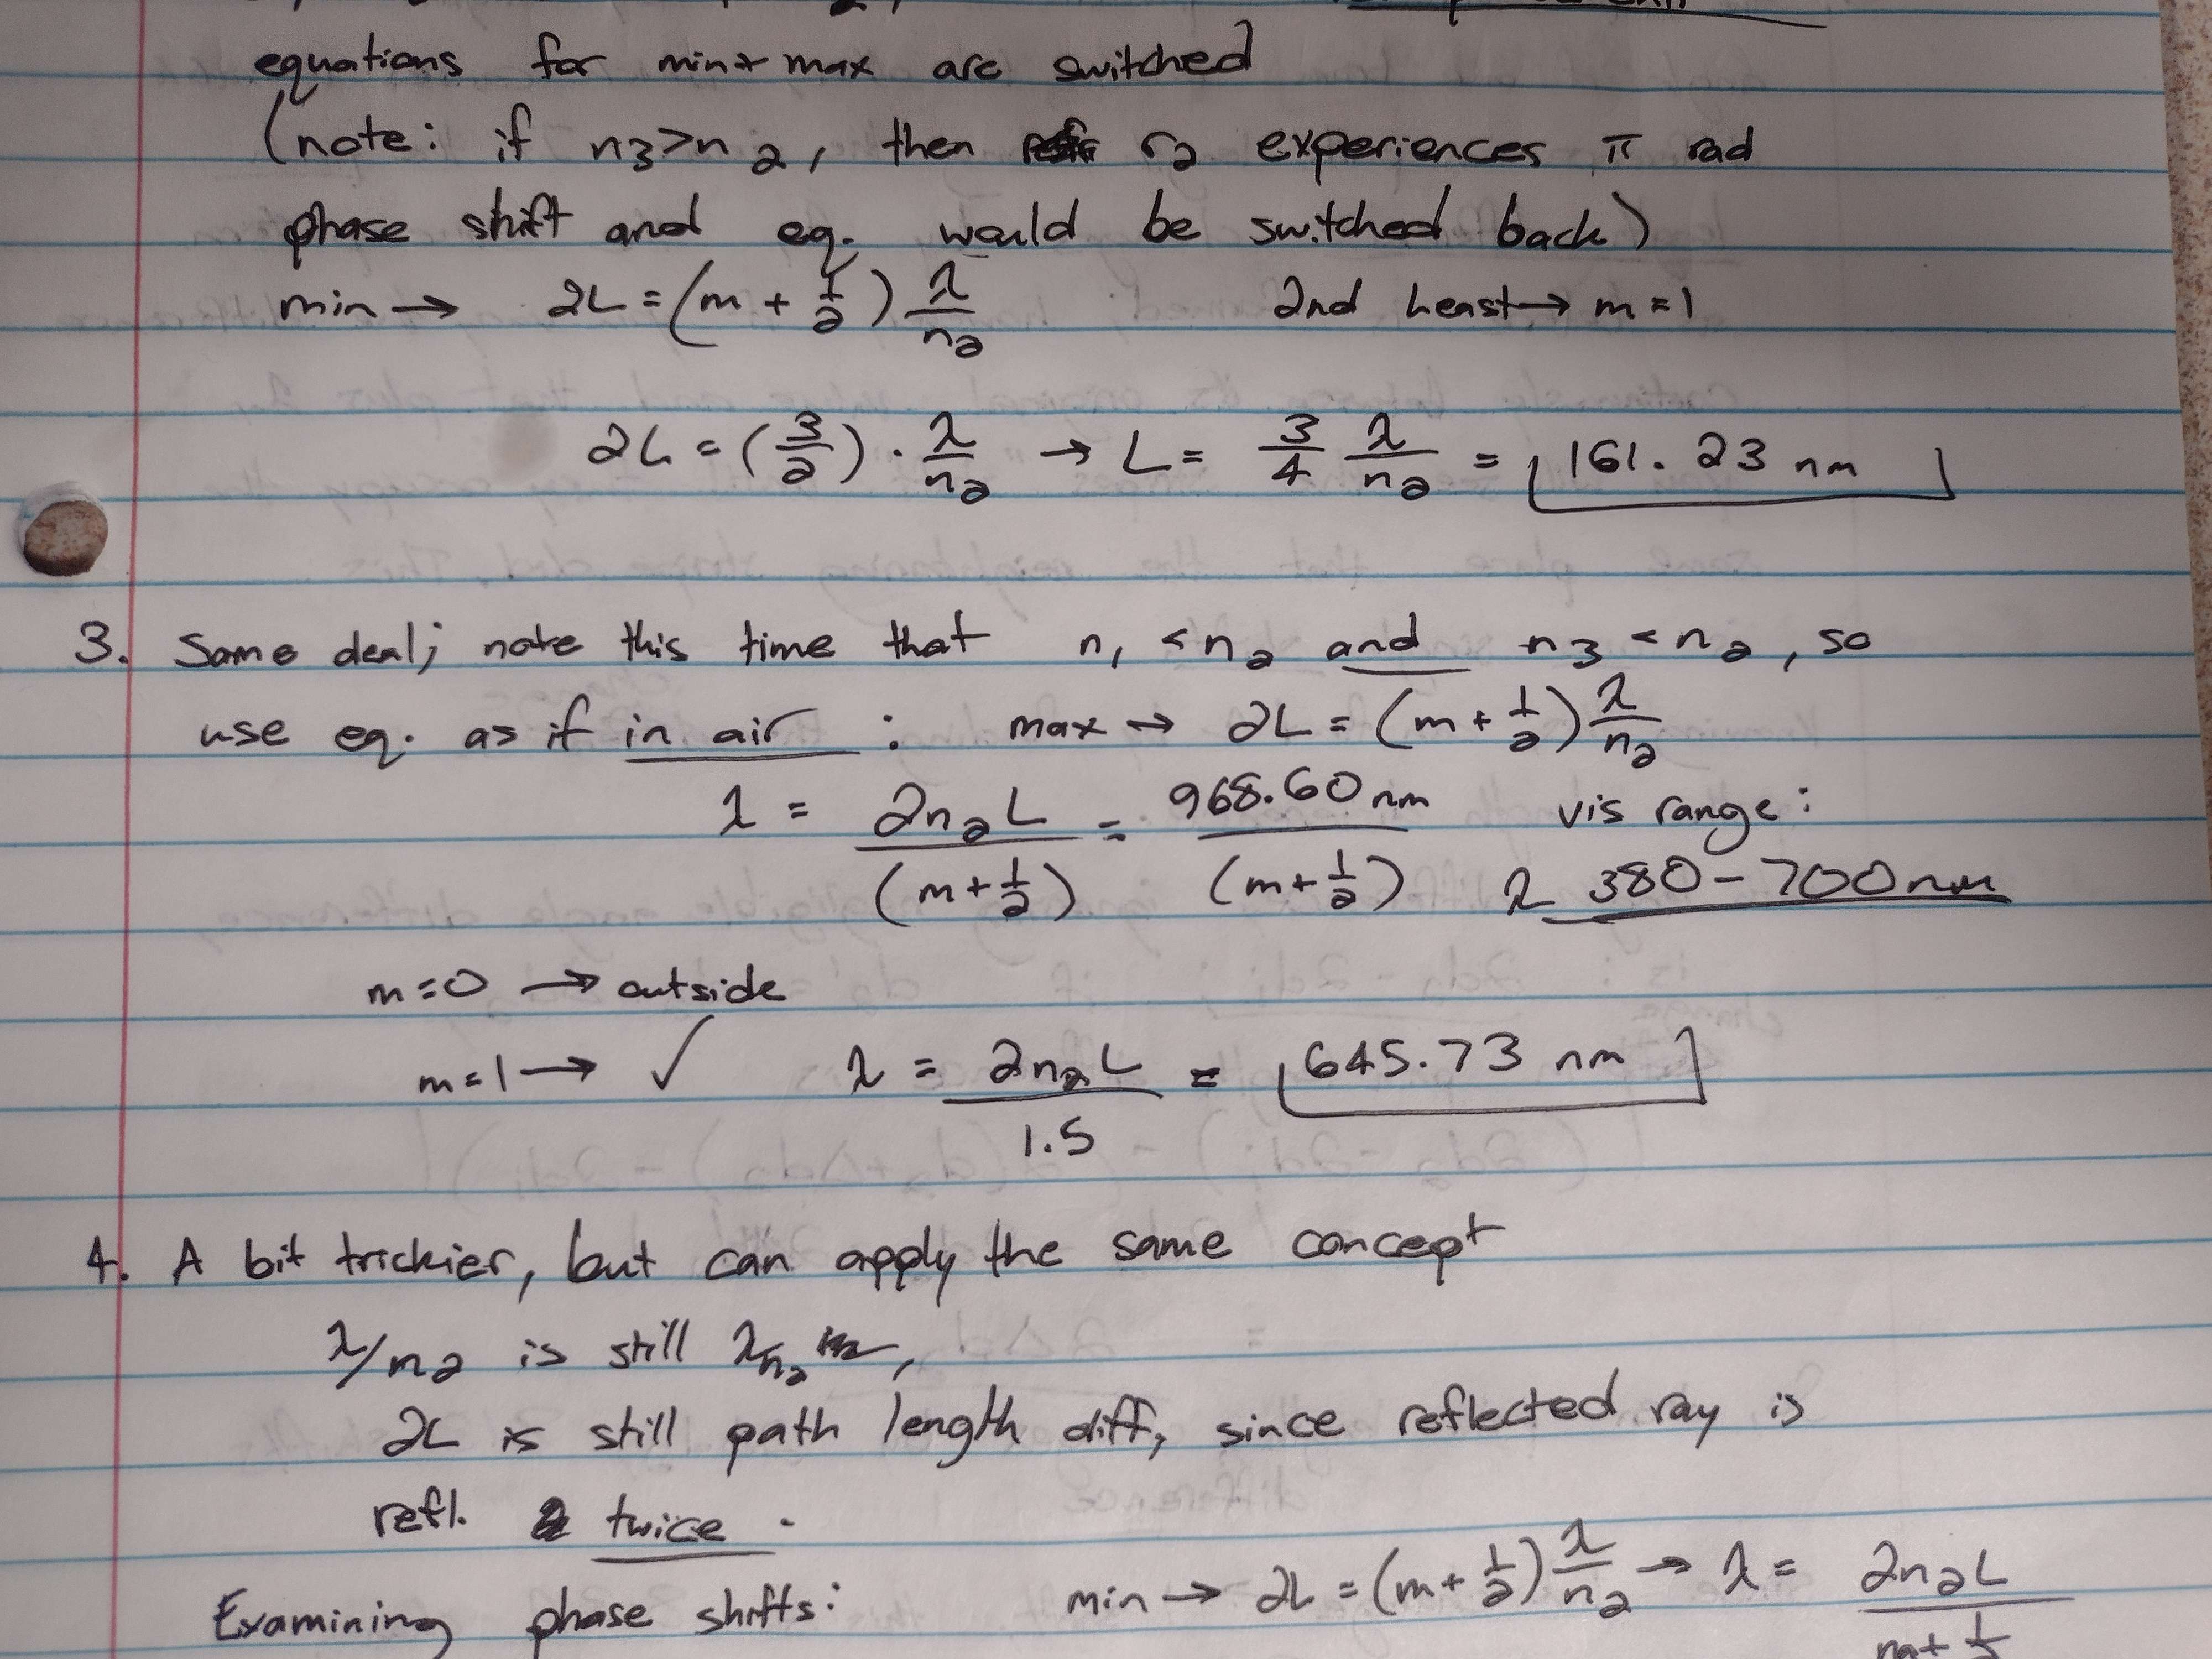 equations for min + max are switched
(note: if n₃>n₂, then r₂ experiences π rad
phase shift and eq. would be switched back)
min → 2L = (m + 1/2) λ/n₂ 2nd least → m = 1
2L = (3/2) · λ/n₂ → L = 3/4 λ/n₂ = 161.23 nm
3. Same deal; note this time that n₁ < n₂ and n₃ < n₂, so
use eq. as if in air : max → 2L = (m + 1/2) λ/n₂
λ = 2n₂L/(m + 1/2) = 968.60 nm/(m + 1/2) vis range:
λ 380-700nm
m=0 → outside
m=1 → ✓ λ = 2n₂L/1.5 = 645.73 nm
4. A bit trickier, but can apply the same concept
λ/n₂ is still λn₂,
2L is still path length diff, since reflected ray is
refl. twice.
Examining phase shifts: min → 2L = (m + 1/2) λ/n₂ → λ = 2n₂L/m + 1/2